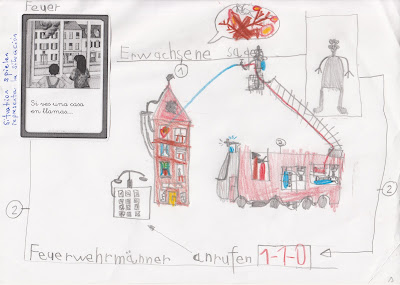 Feuer
Situation spielen
representa la situación
Si ves una casa
en llamas...
Erwachsene
1
2
2
Feuerwehrmänner anrufen 1-1-0